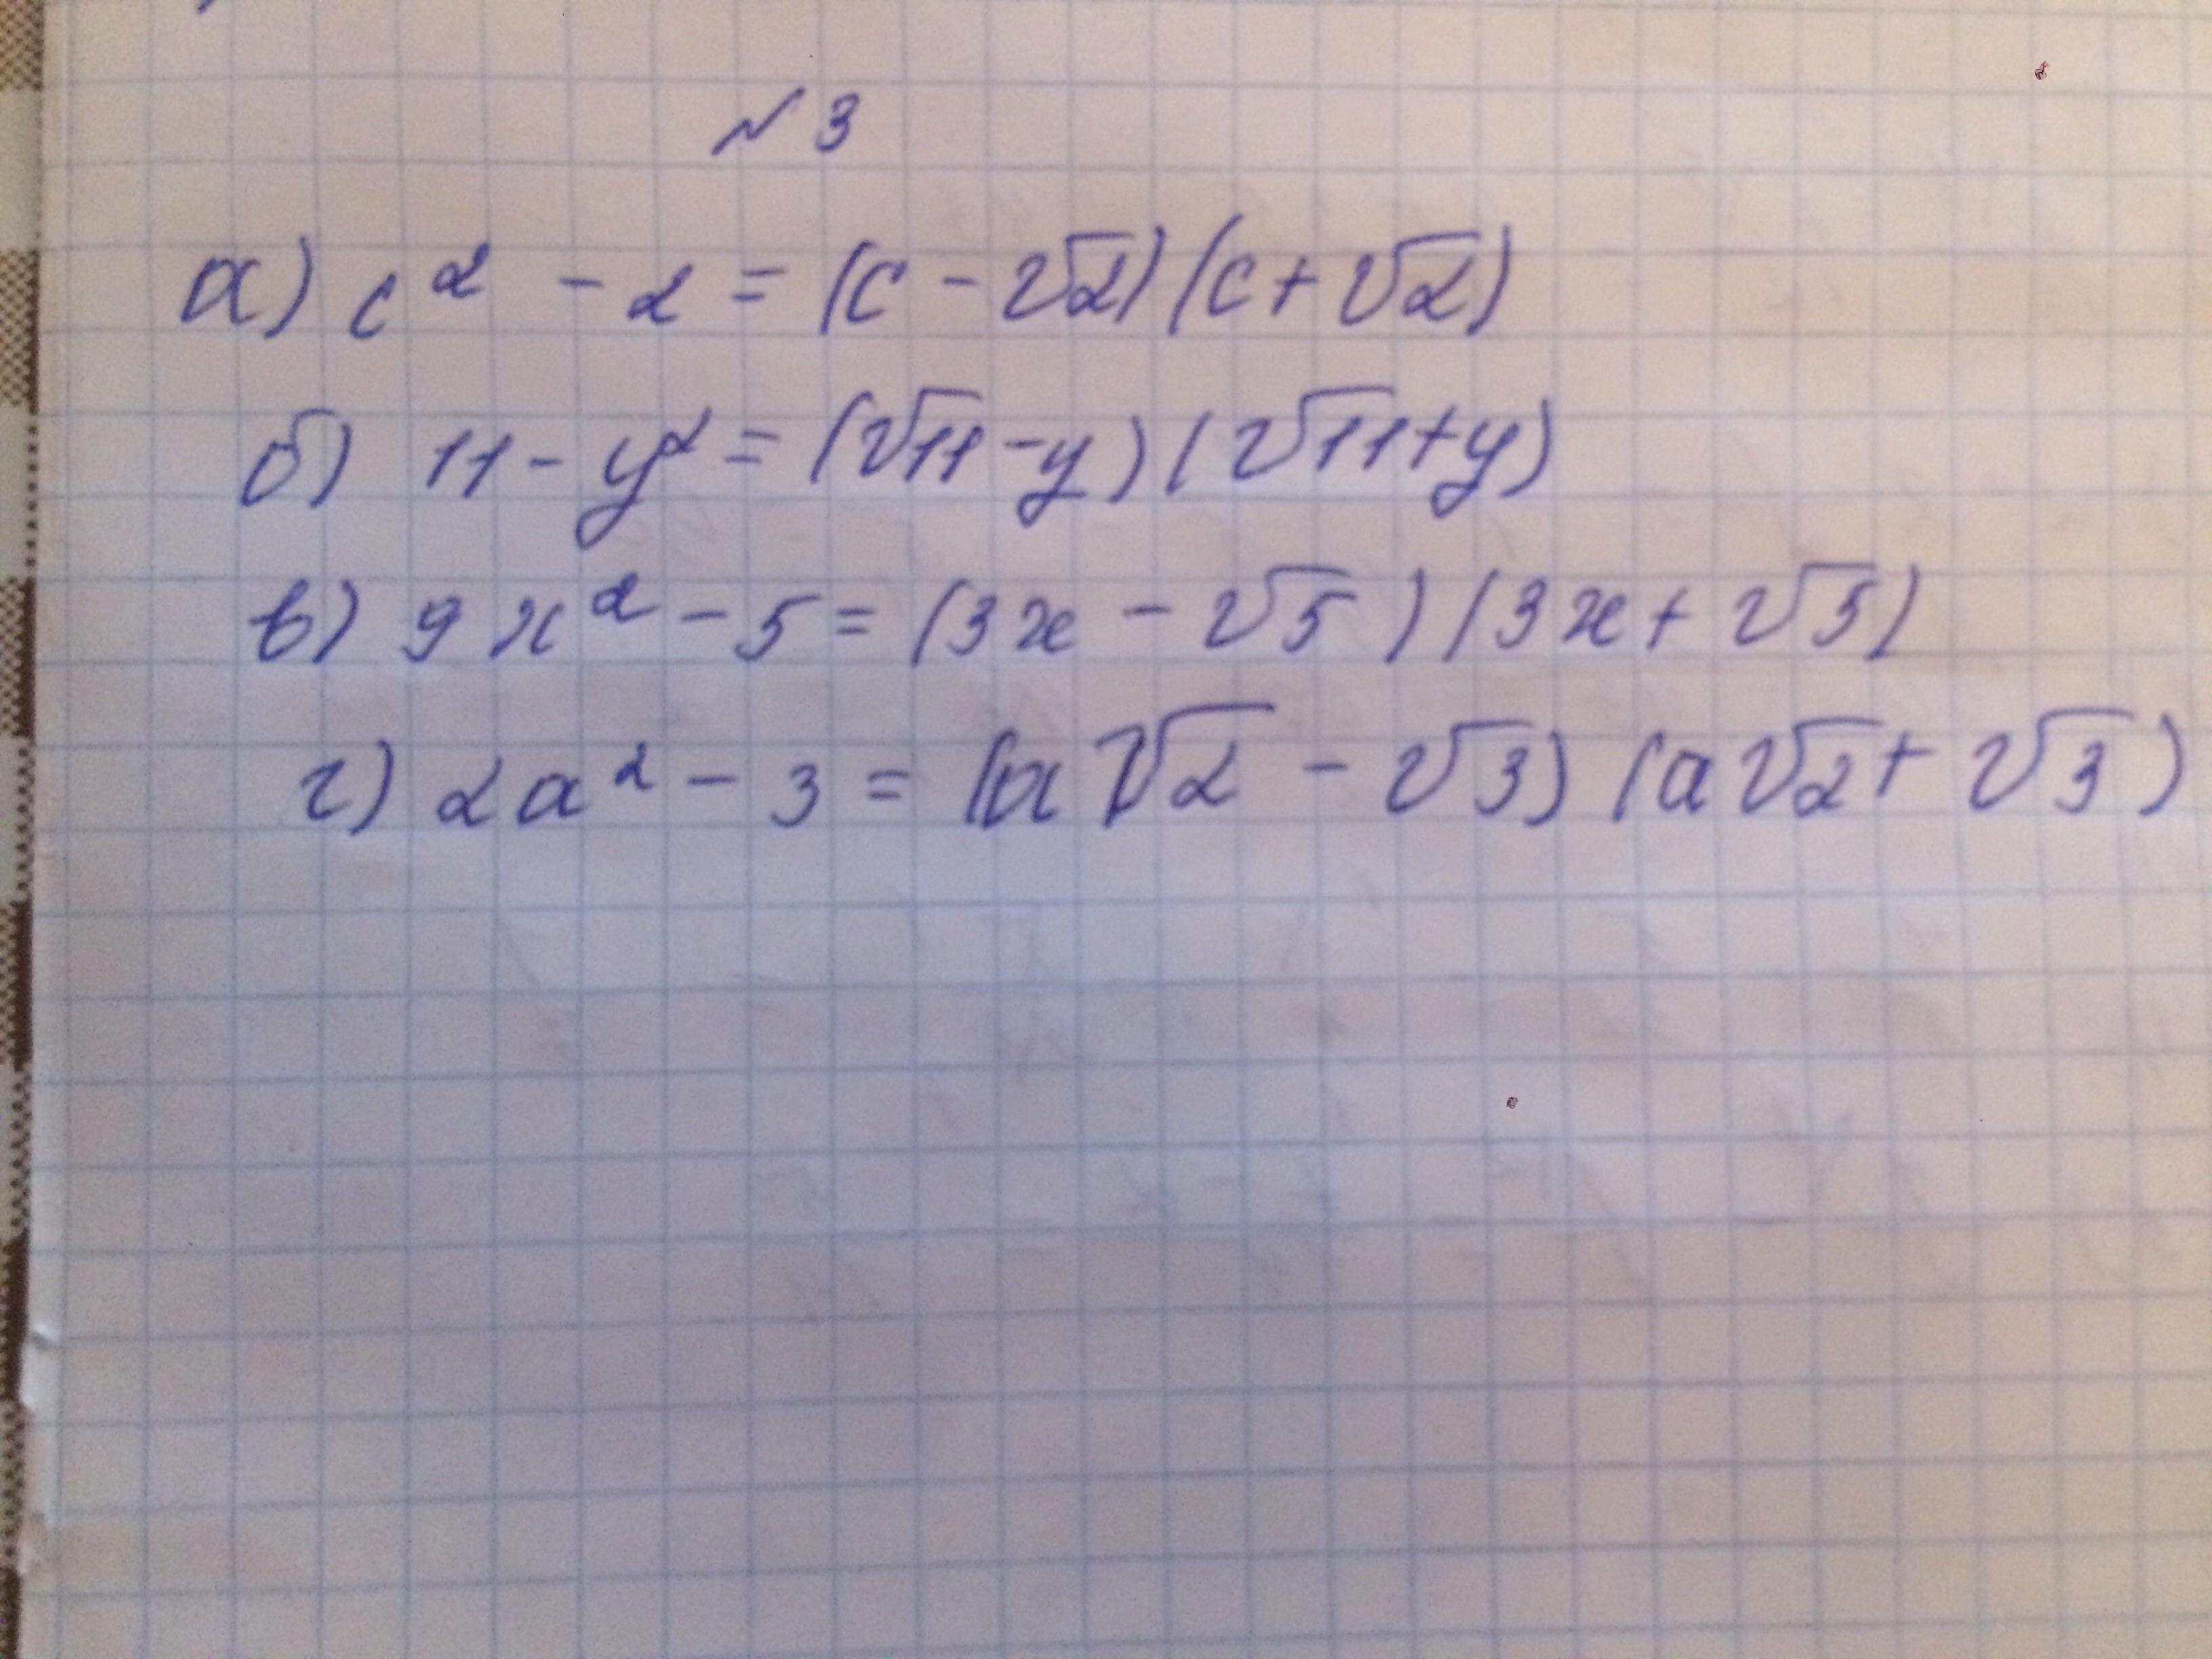 №3
а) c² - 2 = (c - √2)(c + √2)
б) 11 - y² = (√11 - y)(√11 + y)
в) 9x² - 5 = (3x - √5)(3x + √5)
г) 2a² - 3 = (a√2 - √3)(a√2 + √3)